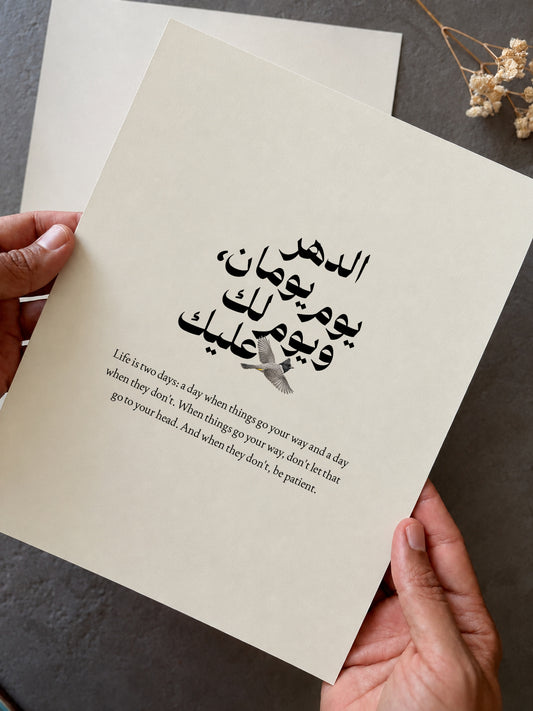 الدهر
يومان،
يوم لك
ويوم عليك
Life is two days: a day when things go your way and a day
when they don't. When things go your way, don't let that
go to your head. And when they don't, be patient.